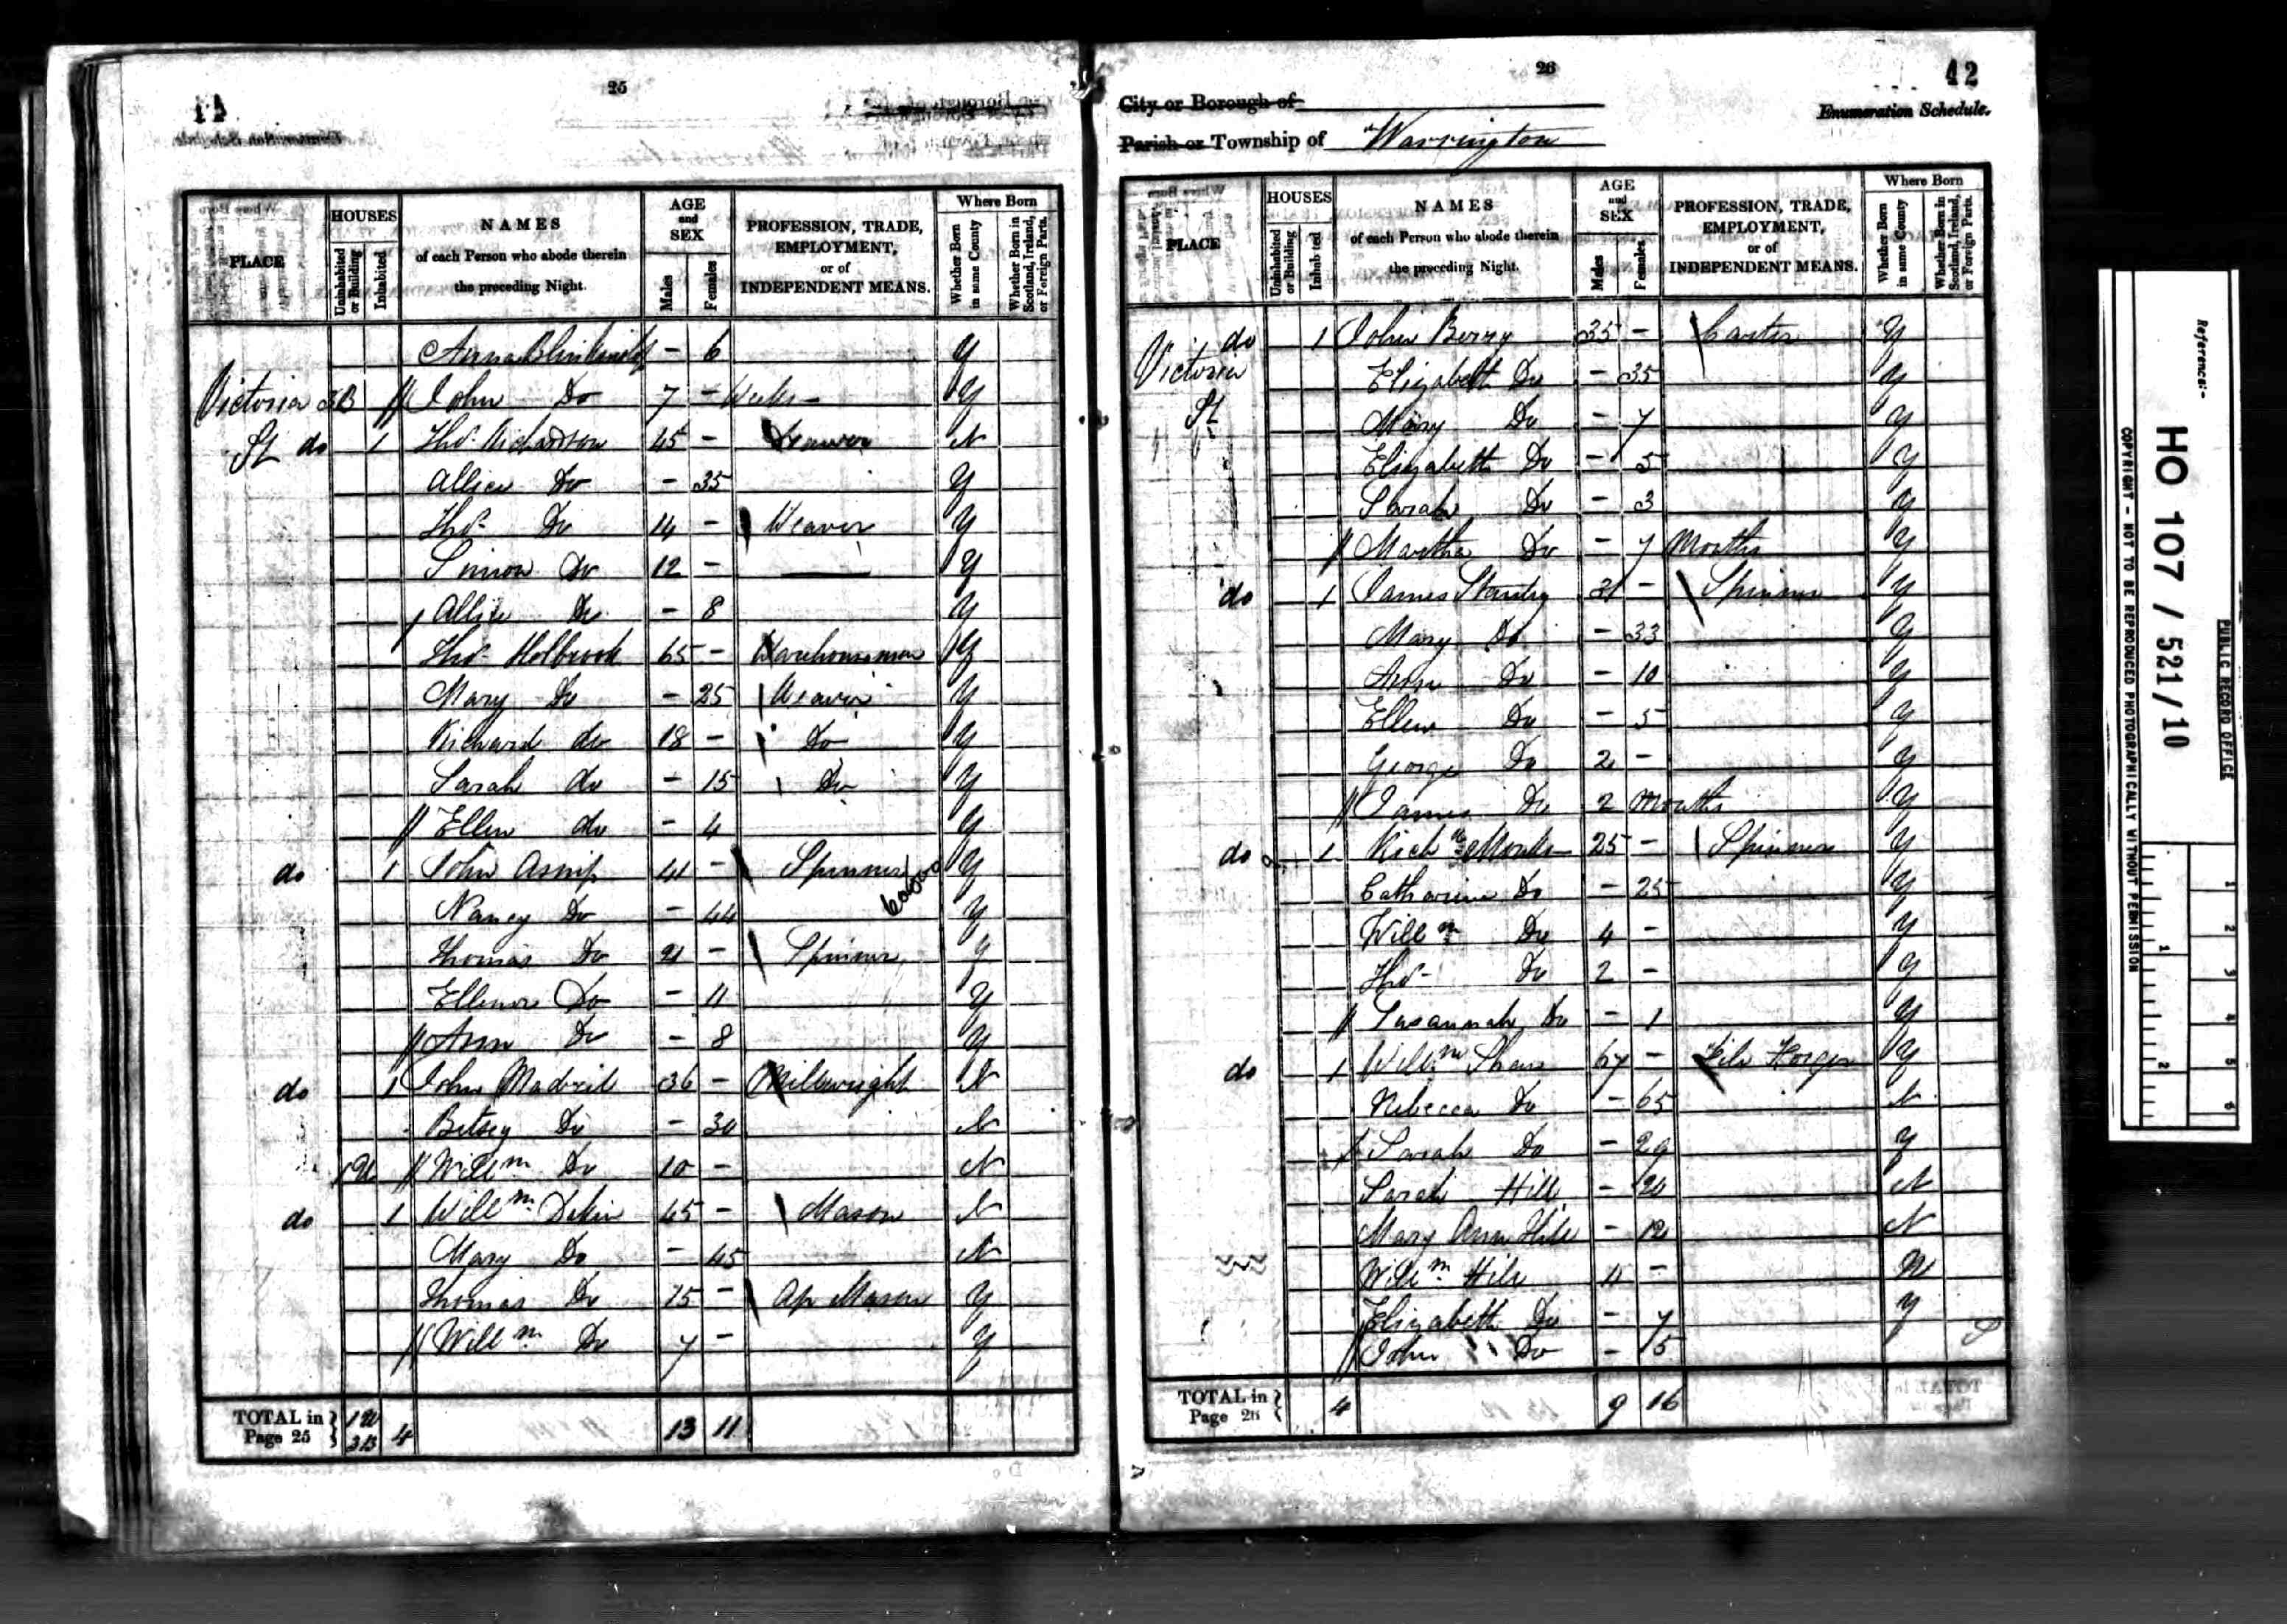 25
PLACE
HOUSES
Uninhabited or Building
Inhabited
NAMES
of each Person who abode therein
the preceding Night.
AGE
and
SEX
Males
Females
PROFESSION, TRADE,
EMPLOYMENT,
or of
INDEPENDENT MEANS.
Where Born
Whether Born in same County
Whether Born in Scotland, Ireland, or Foreign Parts.
- 6 Y
Victoria 3B John Do 7 - Weeks - Y
St do 1 Thos. Richardson 45 - N
Allice Do - 35 Y
Thos. Do 14 - Weaver Y
Simon Do 12 - Y
Allice Do - 8 Y
Thos. Holbrook 65 - Warehouseman Y
Mary Do - 25 Weaver Y
Richard do 18 - Do Y
Sarah do - 15 Do Y
Ellen do - 4 Y
do 1 John Asnip 41 - Spinner Y
Nancy Do - 44 Y
Thomas Do 21 - Spinner Y
Ellenor Do - 11 Y
Ann Do - 8 Y
do 1 John 36 - Millwright N
Betsey Do - 30 N
1U Willm Do 10 - N
do 1 Willm Dakin 45 - Mason N
Mary Do - 45 N
Thomas Do 15 - Ap Mason Y
Willm Do 7 - Y
TOTAL in Page 25 1U 3B 4 13 11
26
42
City or Borough of
Enumeration Schedule.
Parish or Township of Warrington
PLACE
HOUSES
Uninhabited or Building
Inhabited
NAMES
of each Person who abode therein
the preceding Night.
AGE
and
SEX
Males
Females
PROFESSION, TRADE,
EMPLOYMENT,
or of
INDEPENDENT MEANS.
Where Born
Whether Born in same County
Whether Born in Scotland, Ireland, or Foreign Parts.
do 1 John Berry 35 - Carter Y
Victoria Elizabeth Do - 35 Y
St Mary Do - 7 Y
Elizabeth Do - 5 Y
Sarah Do - 3 Y
Martha Do - 7 Months Y
do 1 James - Spinner Y
Mary Do - 33 Y
Ann Do - 10 Y
Ellen Do - 5 Y
George Do 2 - Y
James Do 2 Months Y
do 1 Richd Monks 25 - Spinner Y
Catharine Do - 25 Y
Willm Do 4 - Y
Thos. Do 2 - Y
Susannah Do - 1 Y
do 1 Willm Shaw 67 - File Forger Y
Rebecca Do - 65 N
Sarah Do - 29 Y
Sarah Hill - 20 N
Mary Ann Hill - 12 N
Willm Hill 11 - N
Elizabeth Do - 7 Y
John Do - 5 S
TOTAL in Page 26 4 9 16
Reference:-
HO 107 / 521/10
PUBLIC RECORD OFFICE
COPYRIGHT - NOT TO BE REPRODUCED PHOTOGRAPHICALLY WITHOUT PERMISSION
1 2 3 4 5 6
1 2